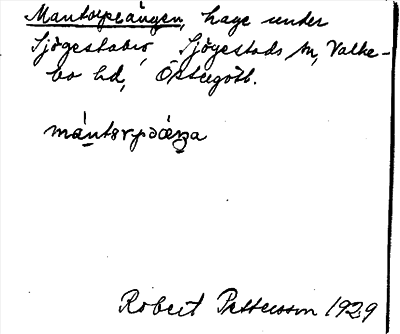 Mantorpeängen, hage under
Sjögestad, Sjögestads sn, Valke-
bo hd, Östergötl.
mántorpǝäŋa
Robert Pettersson 1929